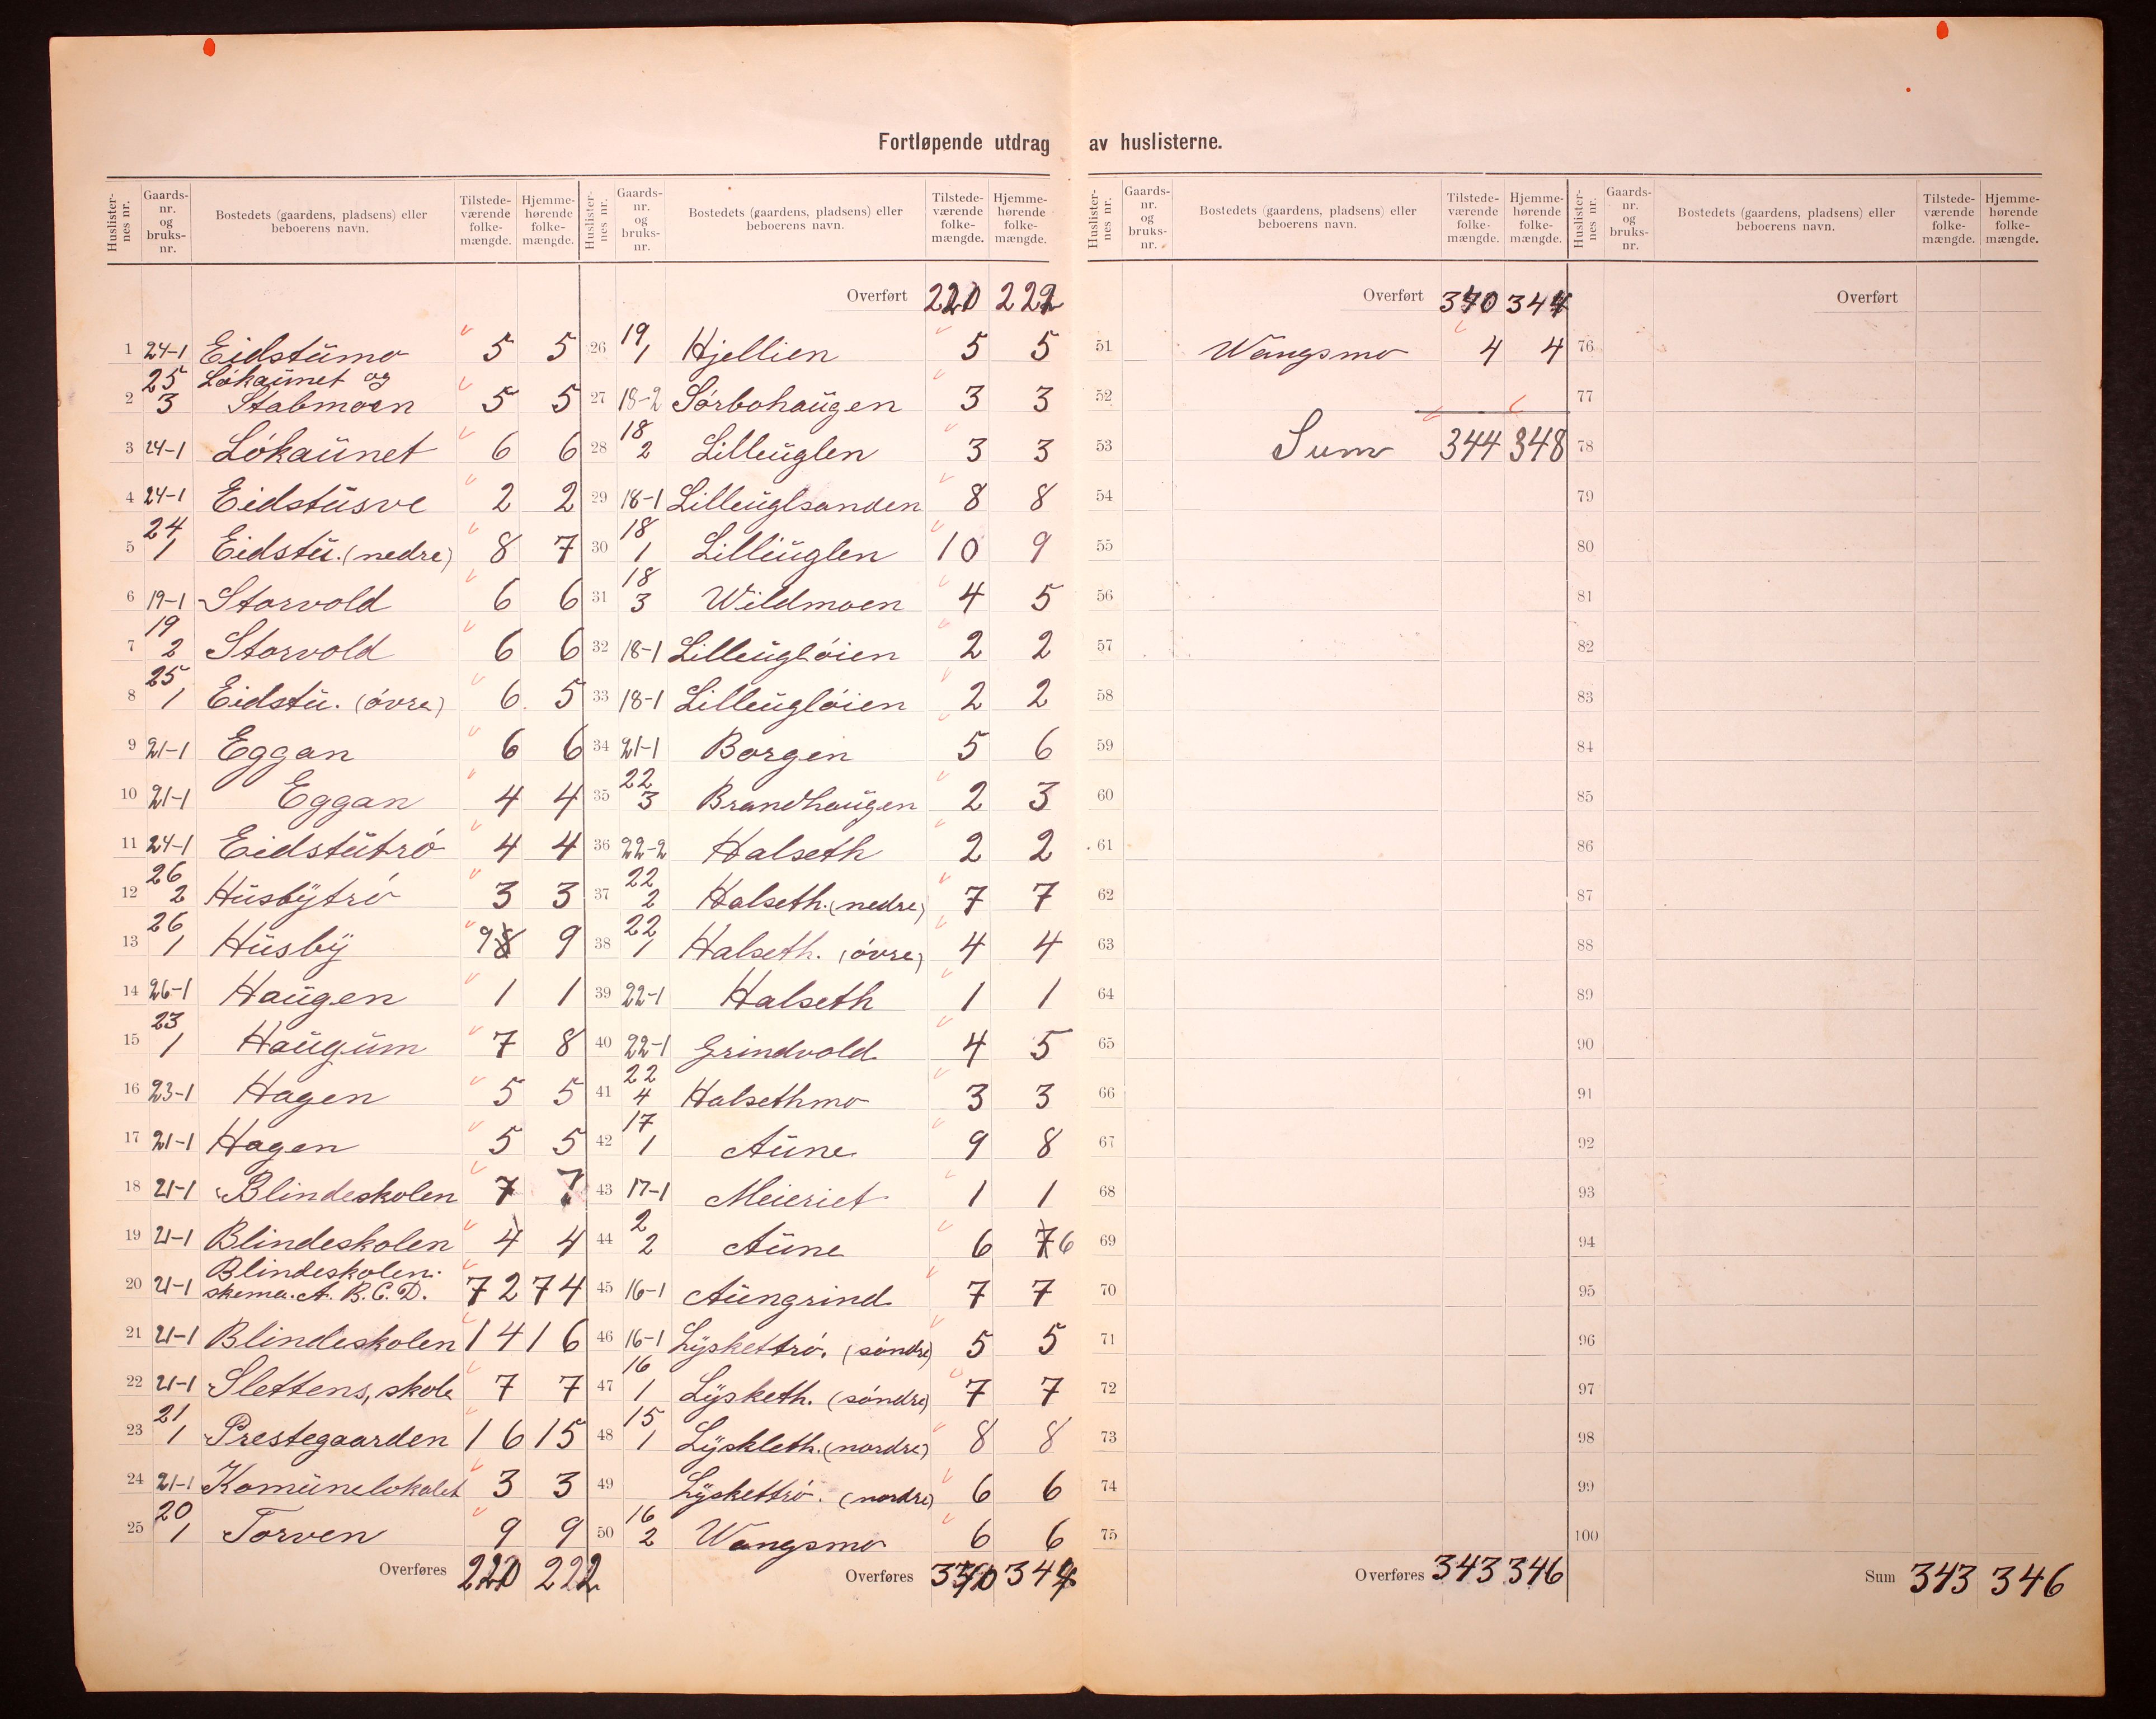 Fortløpende utdrag av huslisterne.
Huslisternes nr. Gaards-nr. og bruks-nr. Bostedets (gaardens, pladsens) eller beboerens navn. Tilstede-værende folke-mængde. Hjemme-hørende folke-mængde.
1 24-1 Eidstŭmo 5 5
2 25 3 Lökaŭnet og Stabmoen 5 5
3 24-1 Lökaŭnet 6 6
4 24-1 Eidstŭsve 2 2
5 24 1 Eidstŭ. (nedre) 8 7
6 19-1 Storvold 6 6
7 19 2 Storvold 6 6
8 25 1 Eidstŭ. (övre) 6 5
9 21-1 Eggan 6 6
10 21-1 Eggan 4 4
11 24-1 Eidstŭtrö 4 4
12 26 2 Hŭsbÿtrö 3 3
13 26 1 Hŭsbÿ 9 8 9
14 26-1 Haŭgen 1 1
15 23 1 Haŭgŭm 7 8
16 23-1 Hagen 5 5
17 21-1 Hagen 5 5
18 21-1 Blindeskolen 7 7
19 21-1 Blindeskolen 4 4
20 21-1 Blindeskolen. skema. A. B. C. D. 72 74
21 21-1 Blindeskolen 14 16
22 21-1 Slettens, skole 7 7
23 21 1 Prestegaarden 16 15
24 21-1 Komŭnelokalet 3 3
25 20 1 Torven 9 9
Overføres 220 222
Huslisternes nr. Gaards-nr. og bruks-nr. Bostedets (gaardens, pladsens) eller beboerens navn. Tilstede-værende folke-mængde. Hjemme-hørende folke-mængde.
Overført 220 222
26 19 1 Hjellien 5 5
27 18-2 Sörbohaŭgen 3 3
28 18 2 Lilleŭglen 3 3
29 18-1 Lilleŭglsanden 8 8
30 18 1 Lilleŭglen 10 9
31 18 3 Wildmoen 4 5
32 18-1 Lilleŭglöien 2 2
33 18-1 Lilleŭglöien 2 2
34 21-1 Borgen 5 6
35 22 3 Brandhaŭgen 2 3
36 22-2 Halseth 2 2
37 22 2 Halseth. (nedre) 7 7
38 22 1 Halseth. (övre) 4 4
39 22-1 Halseth 1 1
40 22-1 Grindvold 4 5
41 22 4 Halsethmo 3 3
42 17 1 Aŭne 9 8
43 17-1 Meieriet 1 1
44 2 2 Aŭne 6 7 6
45 16-1 Aŭngrind 7 7
46 16-1 Lÿskettrö. (söndre) 5 5
47 16 1 Lÿsketh. (söndre) 7 7
48 15 1 Lÿskleth. (nordre) 8 8
49 Lÿskettrö. (nordre) 6 6
50 16 2 Wangsmo 6 6
Overføres 340 344
Huslisternes nr. Gaards-nr. og bruks-nr. Bostedets (gaardens, pladsens) eller beboerens navn. Tilstede-værende folke-mængde. Hjemme-hørende folke-mængde.
Overført 340 344
51 Wangsmo 4 4
52
53 Sum 344 348
54
55
56
57
58
59
60
61
62
63
64
65
66
67
68
69
70
71
72
73
74
75
Overføres 343 346
Huslisternes nr. Gaards-nr. og bruks-nr. Bostedets (gaardens, pladsens) eller beboerens navn. Tilstede-værende folke-mængde. Hjemme-hørende folke-mængde.
Overført
76
77
78
79
80
81
82
83
84
85
86
87
88
89
90
91
92
93
94
95
96
97
98
99
100
Sum 343 346